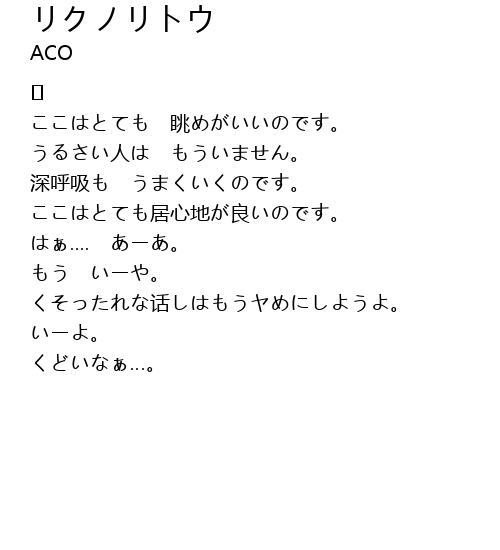 リクノリトウ
ACO
ここはとても　眺めがいいのです。
うるさい人は　もういません。
深呼吸も　うまくいくのです。
ここはとても居心地が良いのです。
はぁ....　あーあ。
もう　いーや。
くそったれな话しはもうヤめにしようよ。
いーよ。
くどいなぁ...。